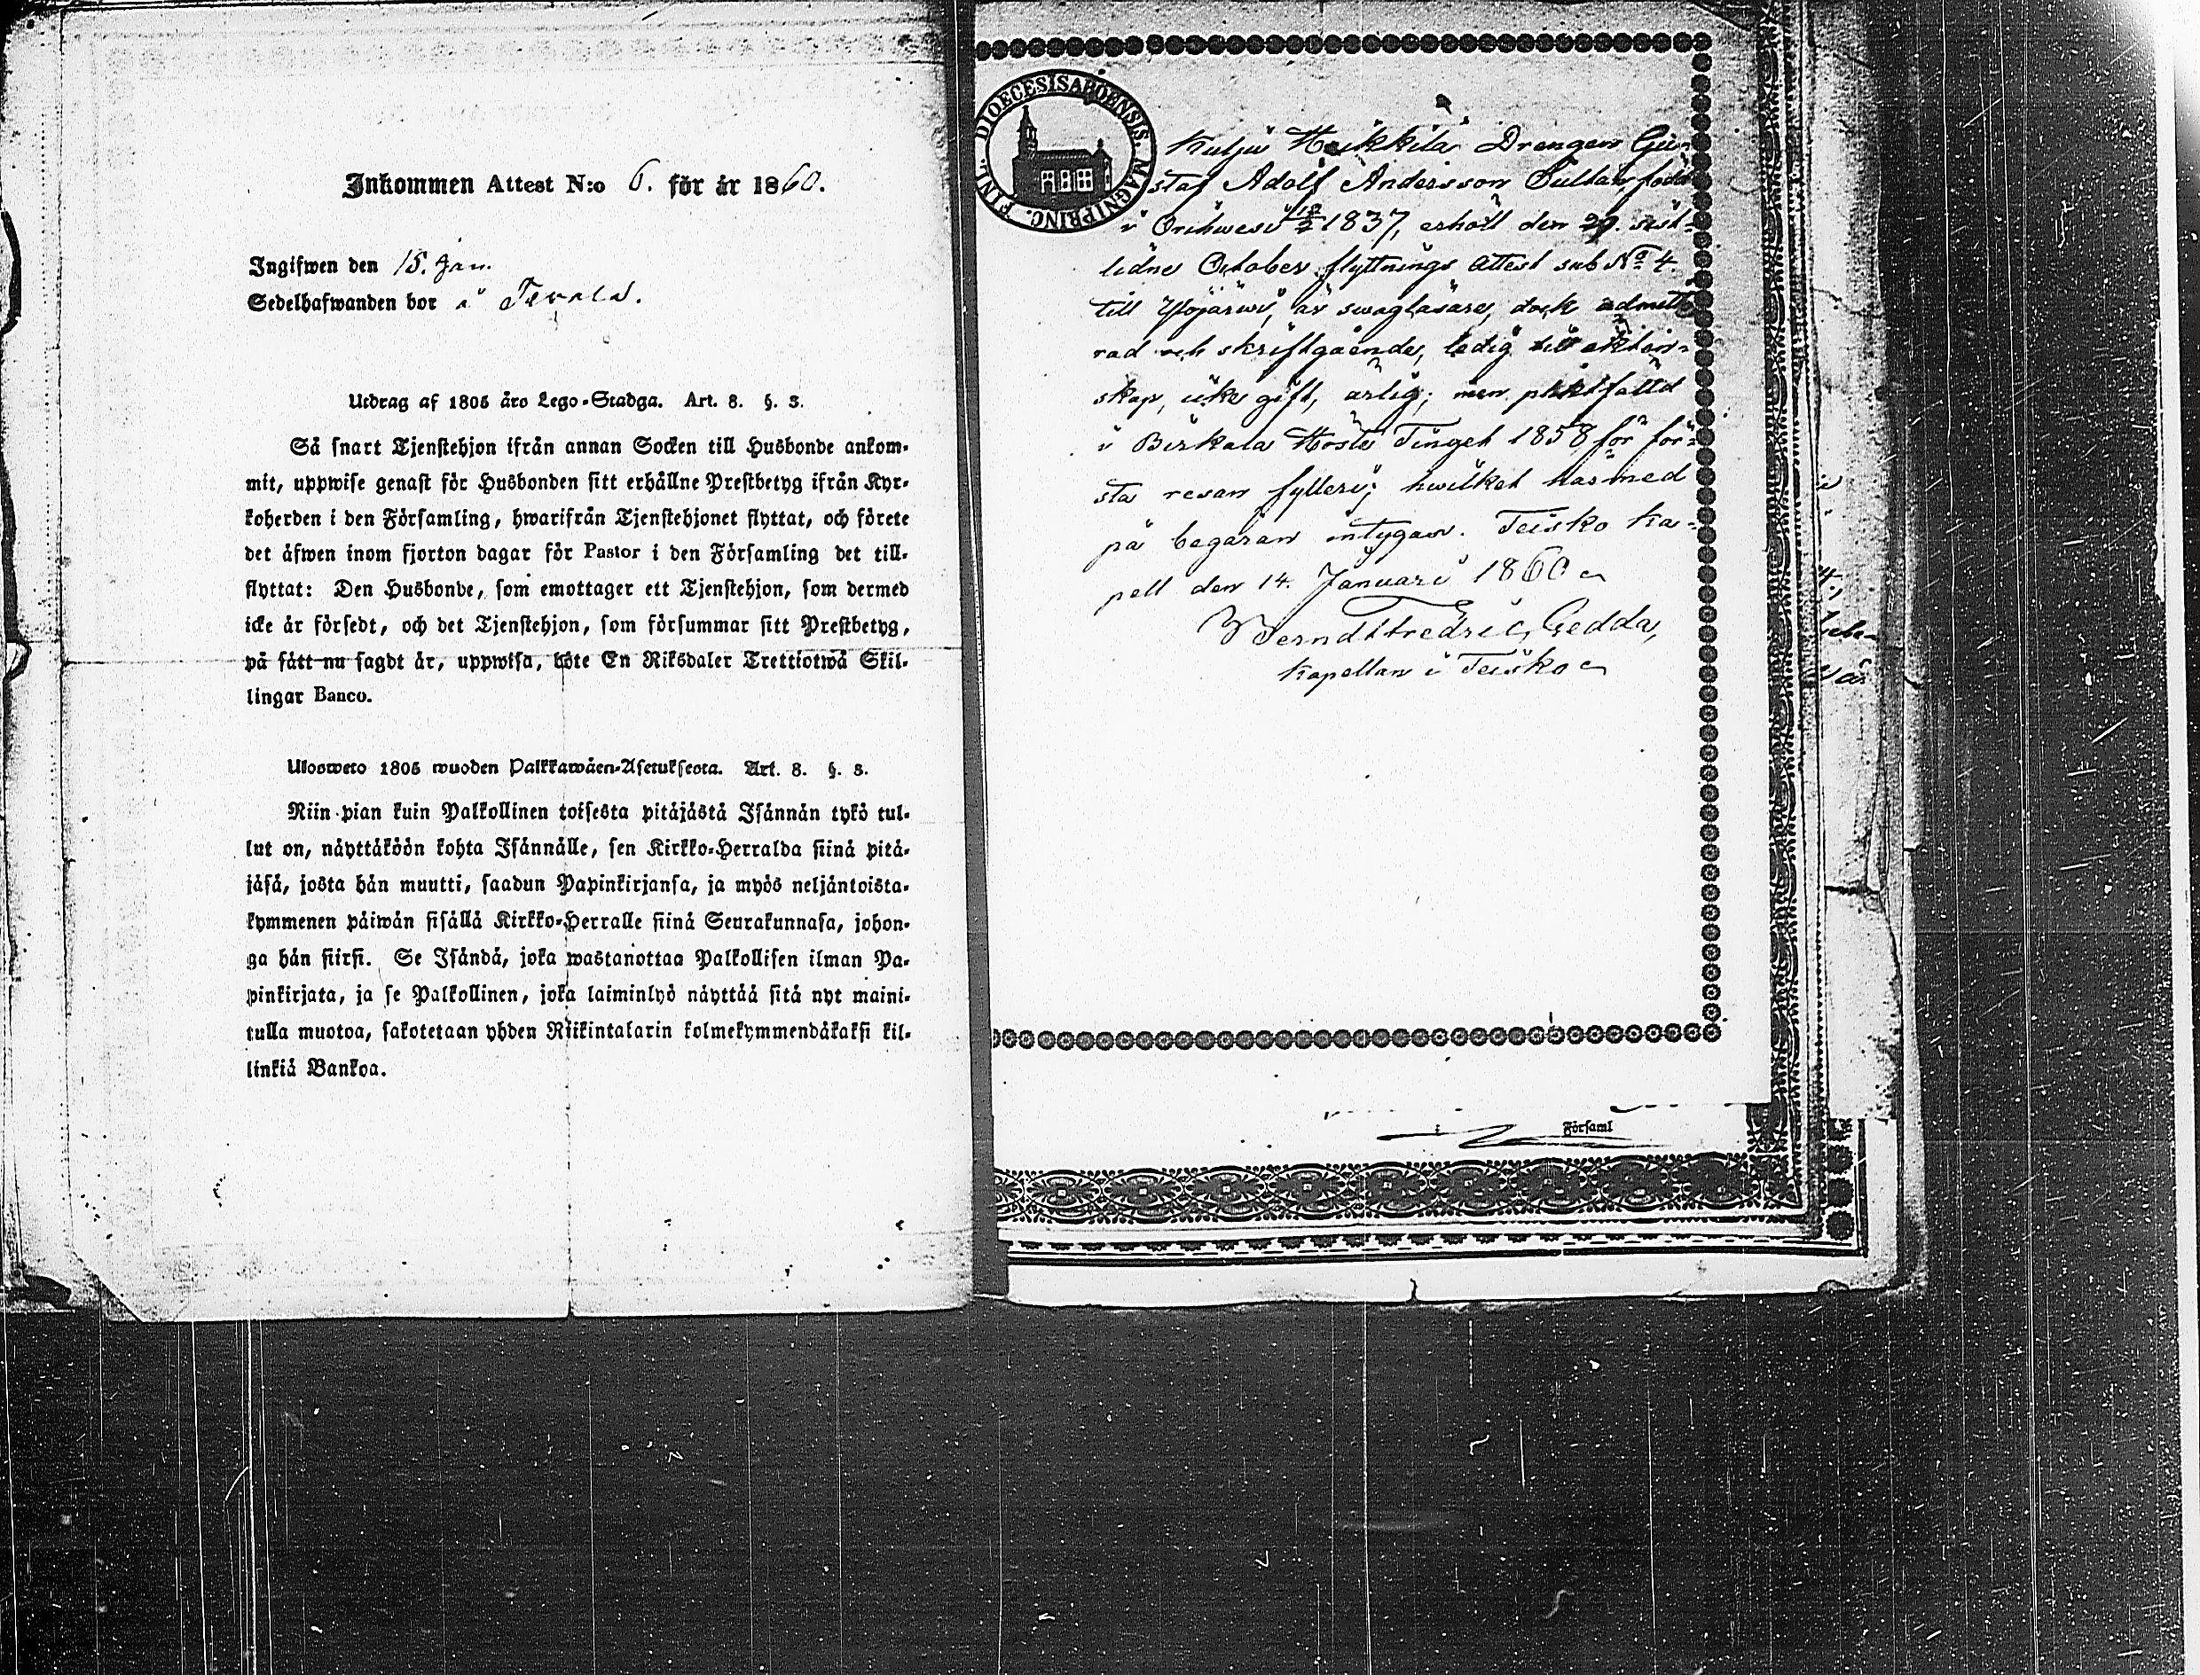 Inkommen Attest N:o 6. för år 1860.
Ingifwen den 15. Jan.
Sedelhafwanden bor å
Utdrag af 1805 års Lego-Stadga. Art. 8. §. 3.
Så snart Tjenstehjon ifrån annan Socken till Husbonde ankom-
mit, uppwise genast för Husbonden sitt erhållne Prestbetyg ifrån Kyr-
koherden i den Församling, hwarifrån Tjenstehjonet flyttat, och förete
det äfwen inom fjorton dagar för Pastor i den Församling det till-
flyttat: Den Husbonde, som emottager ett Tjenstehjon, som dermed
icke är försedt, och det Tjenstehjon, som försummar sitt Prestbetyg,
på sätt nu sagdt är, uppwisa, böte En Riksdaler Trettiotwå Skil-
lingar Banco.
Ulosweto 1805 wuoden Palkkawäen-Asetuksesta. Art. 8. §. 3.
Niin pian kuin Palkollinen toisesta pitäjästä Isännän tykö tul-
lut on, näyttäköön kohta Isännälle, sen Kirkko-Herralda siinä pitä-
jäsä, josta hän muutti, saadun Papinkirjansa, ja myös neljäntoista-
kymmenen päiwän sisällä Kirkko-Herralle siinä Seurakunnasa, johon-
ga hän siirsi. Se Isändä, joka wastanottaa Palkollisen ilman Pa-
pinkirjata, ja se Palkollinen, joka laiminlyö näyttää sitä nyt maini-
tulla muotoa, sakotetaan yhden Riikintalarin kolmekymmendäkaksi kil-
linkiä Bankoa.
DIOECESIS ABOENSIS. MAGNI PRINC. FINL.
Kulju Heikkilä Drengen Gu-
staf Adolf Andersson Sultan, född
i Orihwesi 18/2 1837, erhöll den 29. sist-
lidne October flyttnings attest sub No 4.
till Ylöjärwi, är swagläsare, dock admitte-
rad och skriftgående, ledig till äkten-
skap, icke gift, ärlig; men pliktfälld
i Birkala Höste Tinget 1858 för för-
sta resan fylleri; hwilket härmed
på begäran intygas. Teisko Ka-
pell den 14. Januari 1860
Berndt Fredric Gedda,
Kapellan i Teisko
Församl